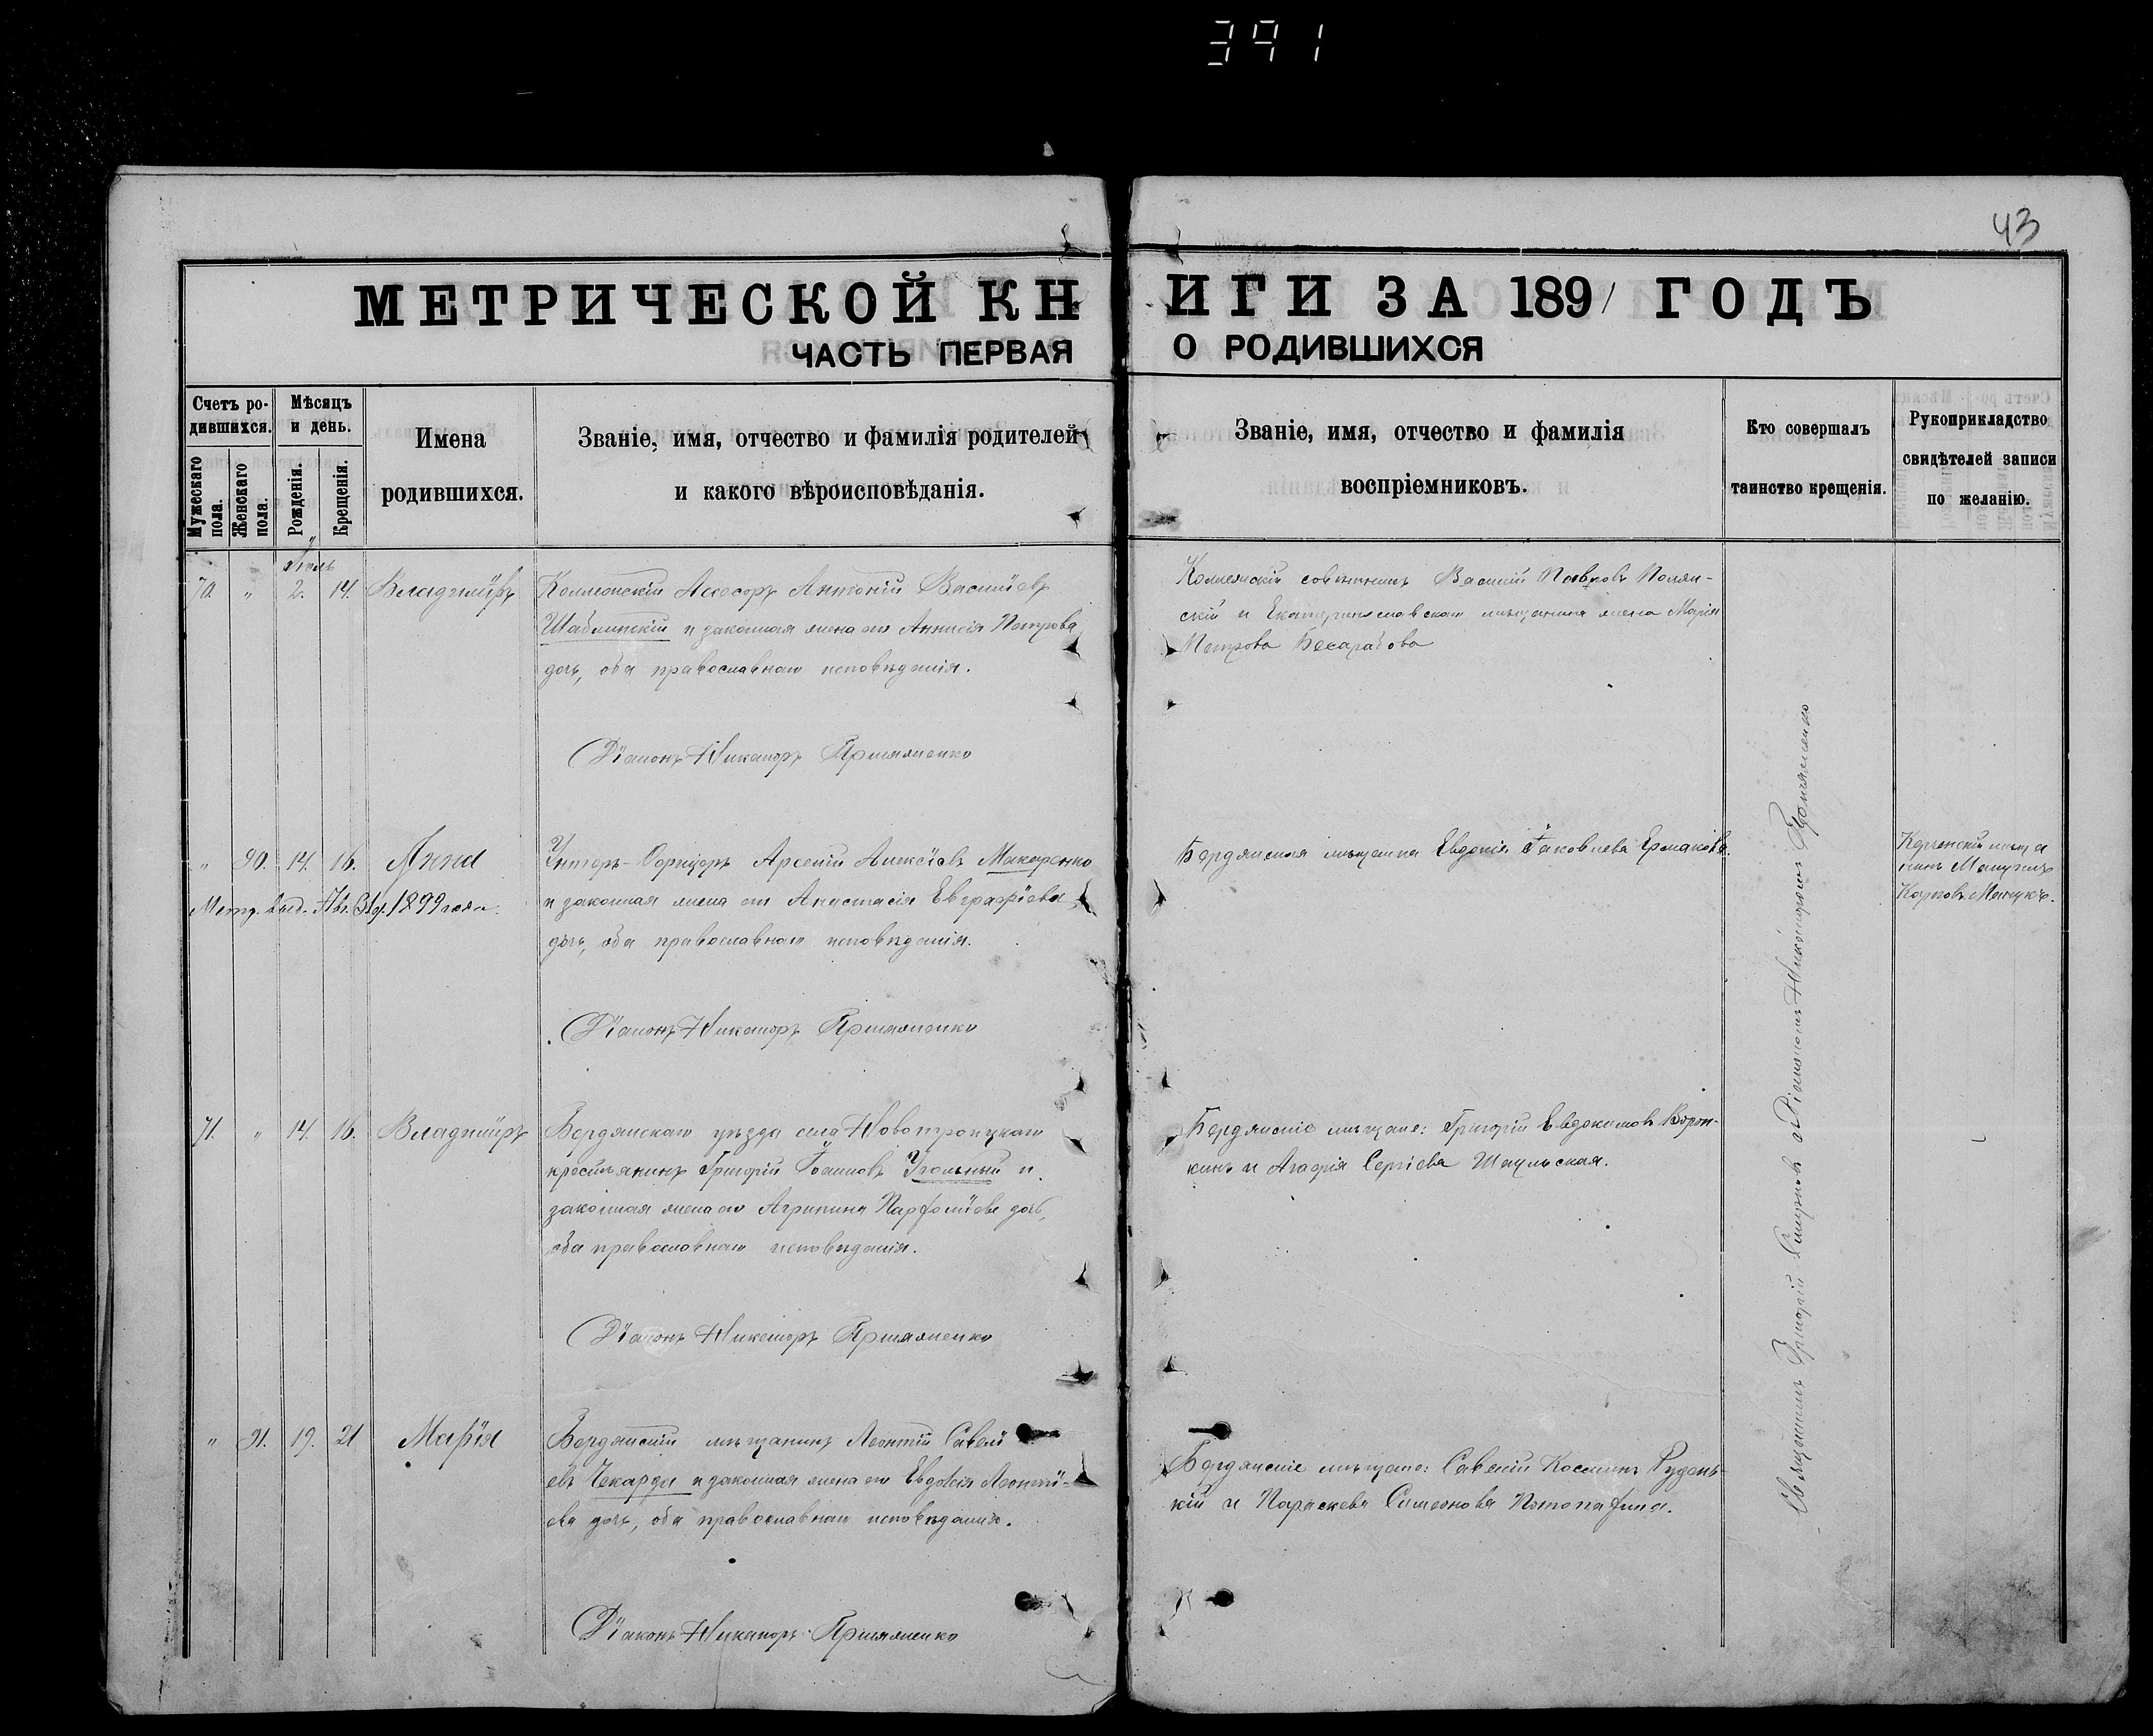 391
43
МЕТРИЧЕСКОЙ КНИГИ ЗА 1891 ГОДЪ
ЧАСТЬ ПЕРВАЯ О РОДИВШИХСЯ
Счетъ ро-
дившихся.
Мужескаго
пола.
Женскаго
пола.
Мѣсяцъ
и день.
Рожденія.
Крещенія.
Имена
родившихся.
Званіе, имя, отчество и фамилія родителей
и какого вѣроисповѣданія.
Званіе, имя, отчество и фамилія
воспріемниковъ.
Кто совершалъ
таинство крещенія.
Рукоприкладство
свидѣтелей записи
по желанію.
70. " 2. 14. Владиміръ
Коллежскій Асесоръ Антоній Василіевъ
Шаблинскій и законная жена его Анисія Петрова
дочь, оба православнаго исповѣданія.
Діаконъ Никаноръ
Коллежскій совѣтникъ Василій Полян-
скій и Екатеринославскаго мѣщанина жена Марія
Петрова Бесарабова
" 90. 14. 16. Анна
1899 года.
Унтеръ-Офицеръ Арсеній Алексіевъ Макаренко
и законная жена его Анастасія Евграфіева
дочь, оба православнаго исповѣданія.
Діаконъ Никаноръ
Бердянская мѣщанка Евдокія Іаковлева Ермакова.
Керченскій мѣща
нинъ
71. " 14. 16. Владиміръ
Бердянскаго уѣзда села Новотроицкаго
крестьянинъ Григорій Іоанновъ Угольный и
законная жена его Агрипина Парфеніева дочь,
оба православнаго исповѣданія.
Діаконъ Никаноръ
Бердянскіе мѣщане: Григорій Евдокимовъ Ворон-
кинъ и Агафія Сергіева
" 91. 19. 21 Марія
Бердянскій мѣщанинъ Леонтій Савелі
евъ Чекарда и законная жена его Евдокія Леонті-
ева дочь, оба православнаго исповѣданія.
Діаконъ Никаноръ
Бердянскіе мѣщане: Савелій Косминъ Рудень-
кій и Параскева Симеонова
Священникъ Григорій съ Діакономъ Никаноромъ